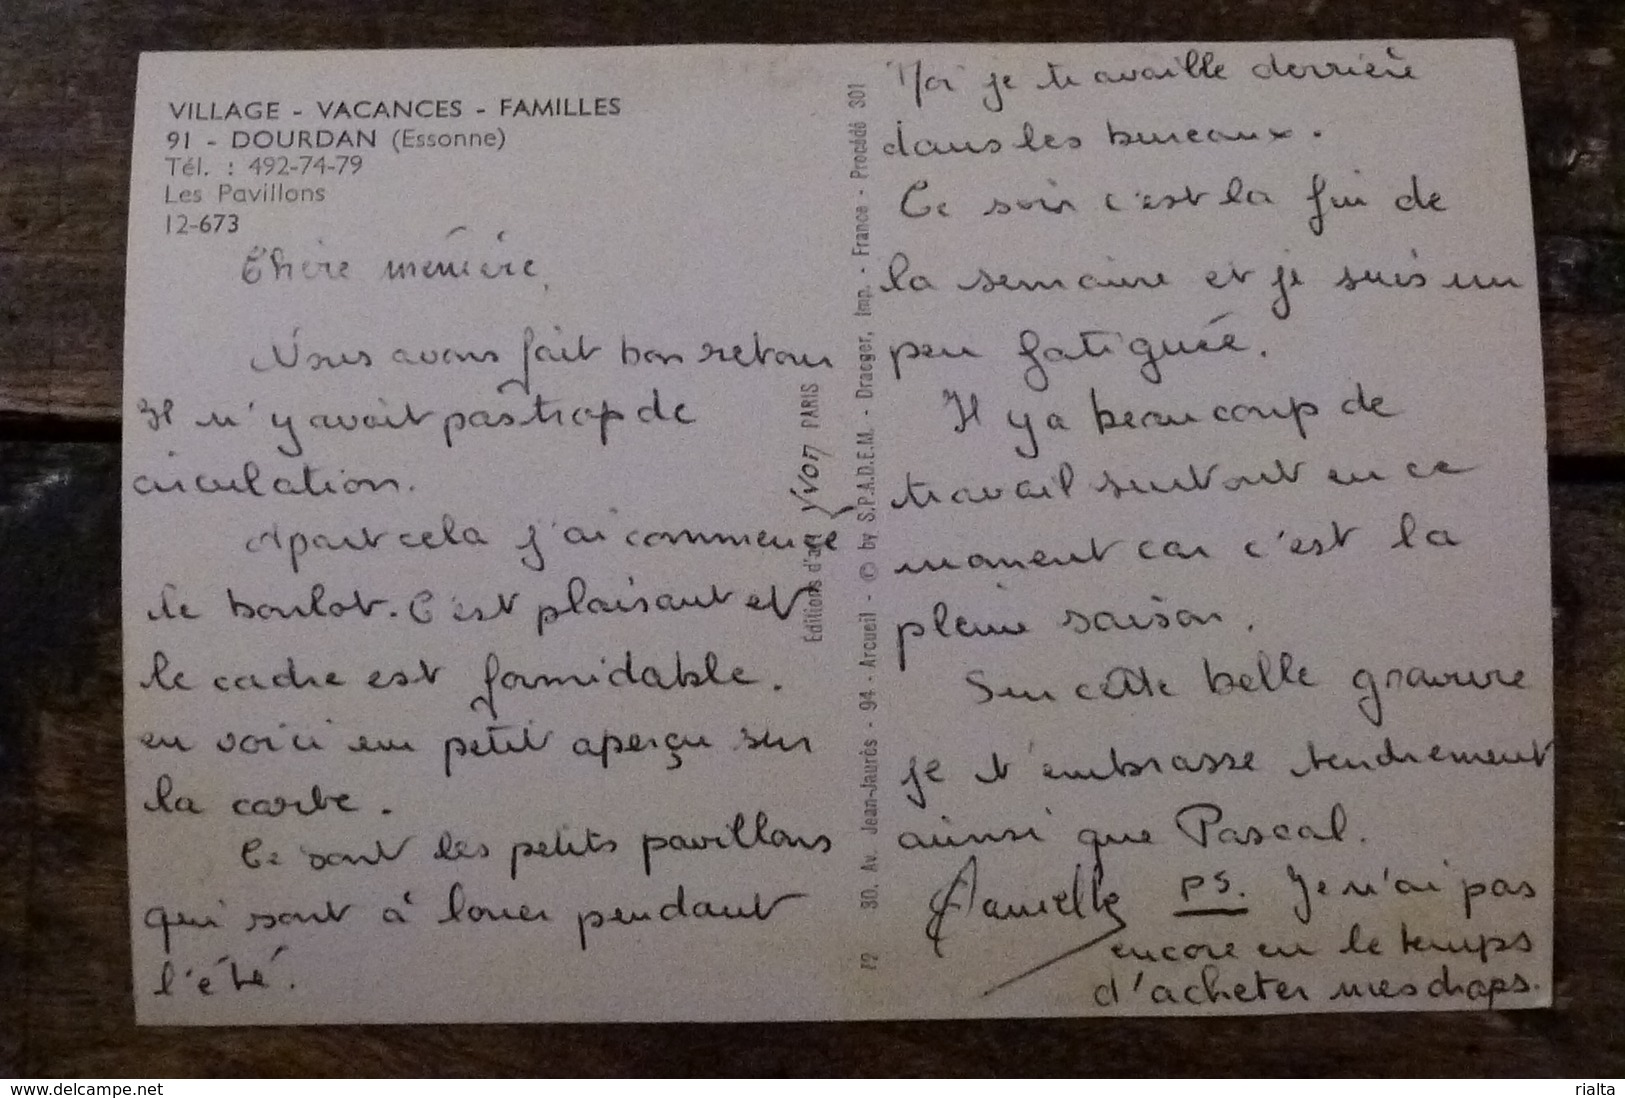 VILLAGE - VACANCES - FAMILLES
91 - DOURDAN (Essonne)
Tél. : 492-74-79
Les Pavillons
12-673
Chère mémère,
Nous avons fait bon retour
Il n'y avait pas trop de
circulation.
Apart cela j'ai commencé
le boulot. C'est plaisant et
le cadre est formidable.
en voici un petit aperçu sur
la carte.
Ce sont les petits pavillons
qui sont à louer pendant
l'été.
Editions d'art YVON PARIS
30, Av. Jean-Jaurès - 94 - Arcueil - © by S.P.A.D.E.M. - Draeger, Imp. - France - Procédé 301
72
Moi je travaille derrière
dans les bureaux.
Ce soir c'est la fin de
la semaine et je suis un
peu fatiguée.
Il y a beaucoup de
travail surtout en ce
moment car c'est la
pleine saison.
Sur cette belle gravure
je t'embrasse tendrement
ainsi que Pascal.
Danielle PS. Je n'ai pas
encore eu le temps
d'acheter mes draps.
delcampe.net
rialta